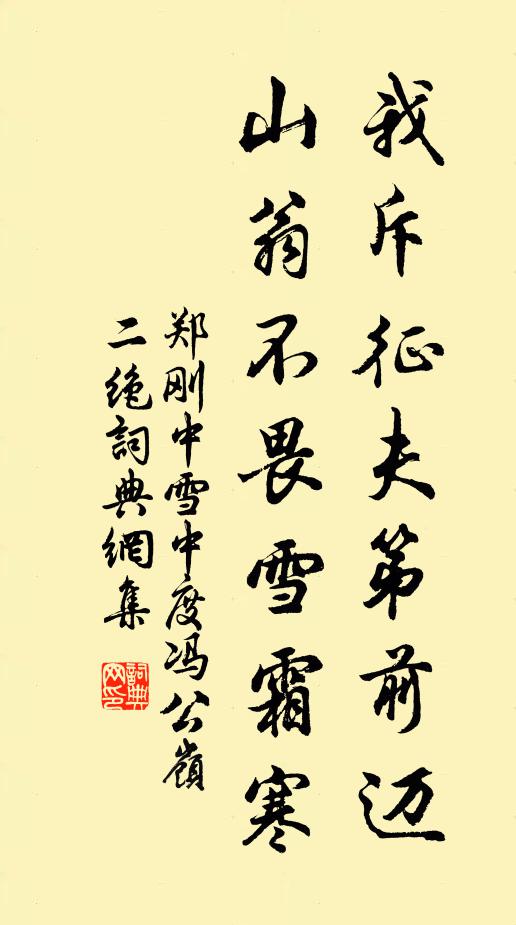 我斥征夫第前迈
山翁不畏雪霜寒
郑刚中雪中度冯公嶺
二绝詞典網集
詞典网印